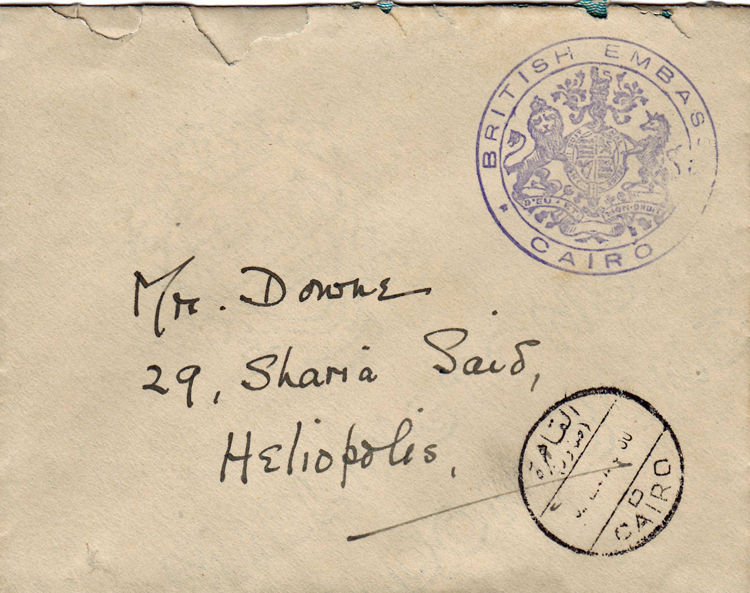 BRITISH EMBAS
D'EU ET MON DROIT
CAIRO
Mr. Downe
29, Sharia Said,
Heliopolis.
القاهرة
D
CAIRO